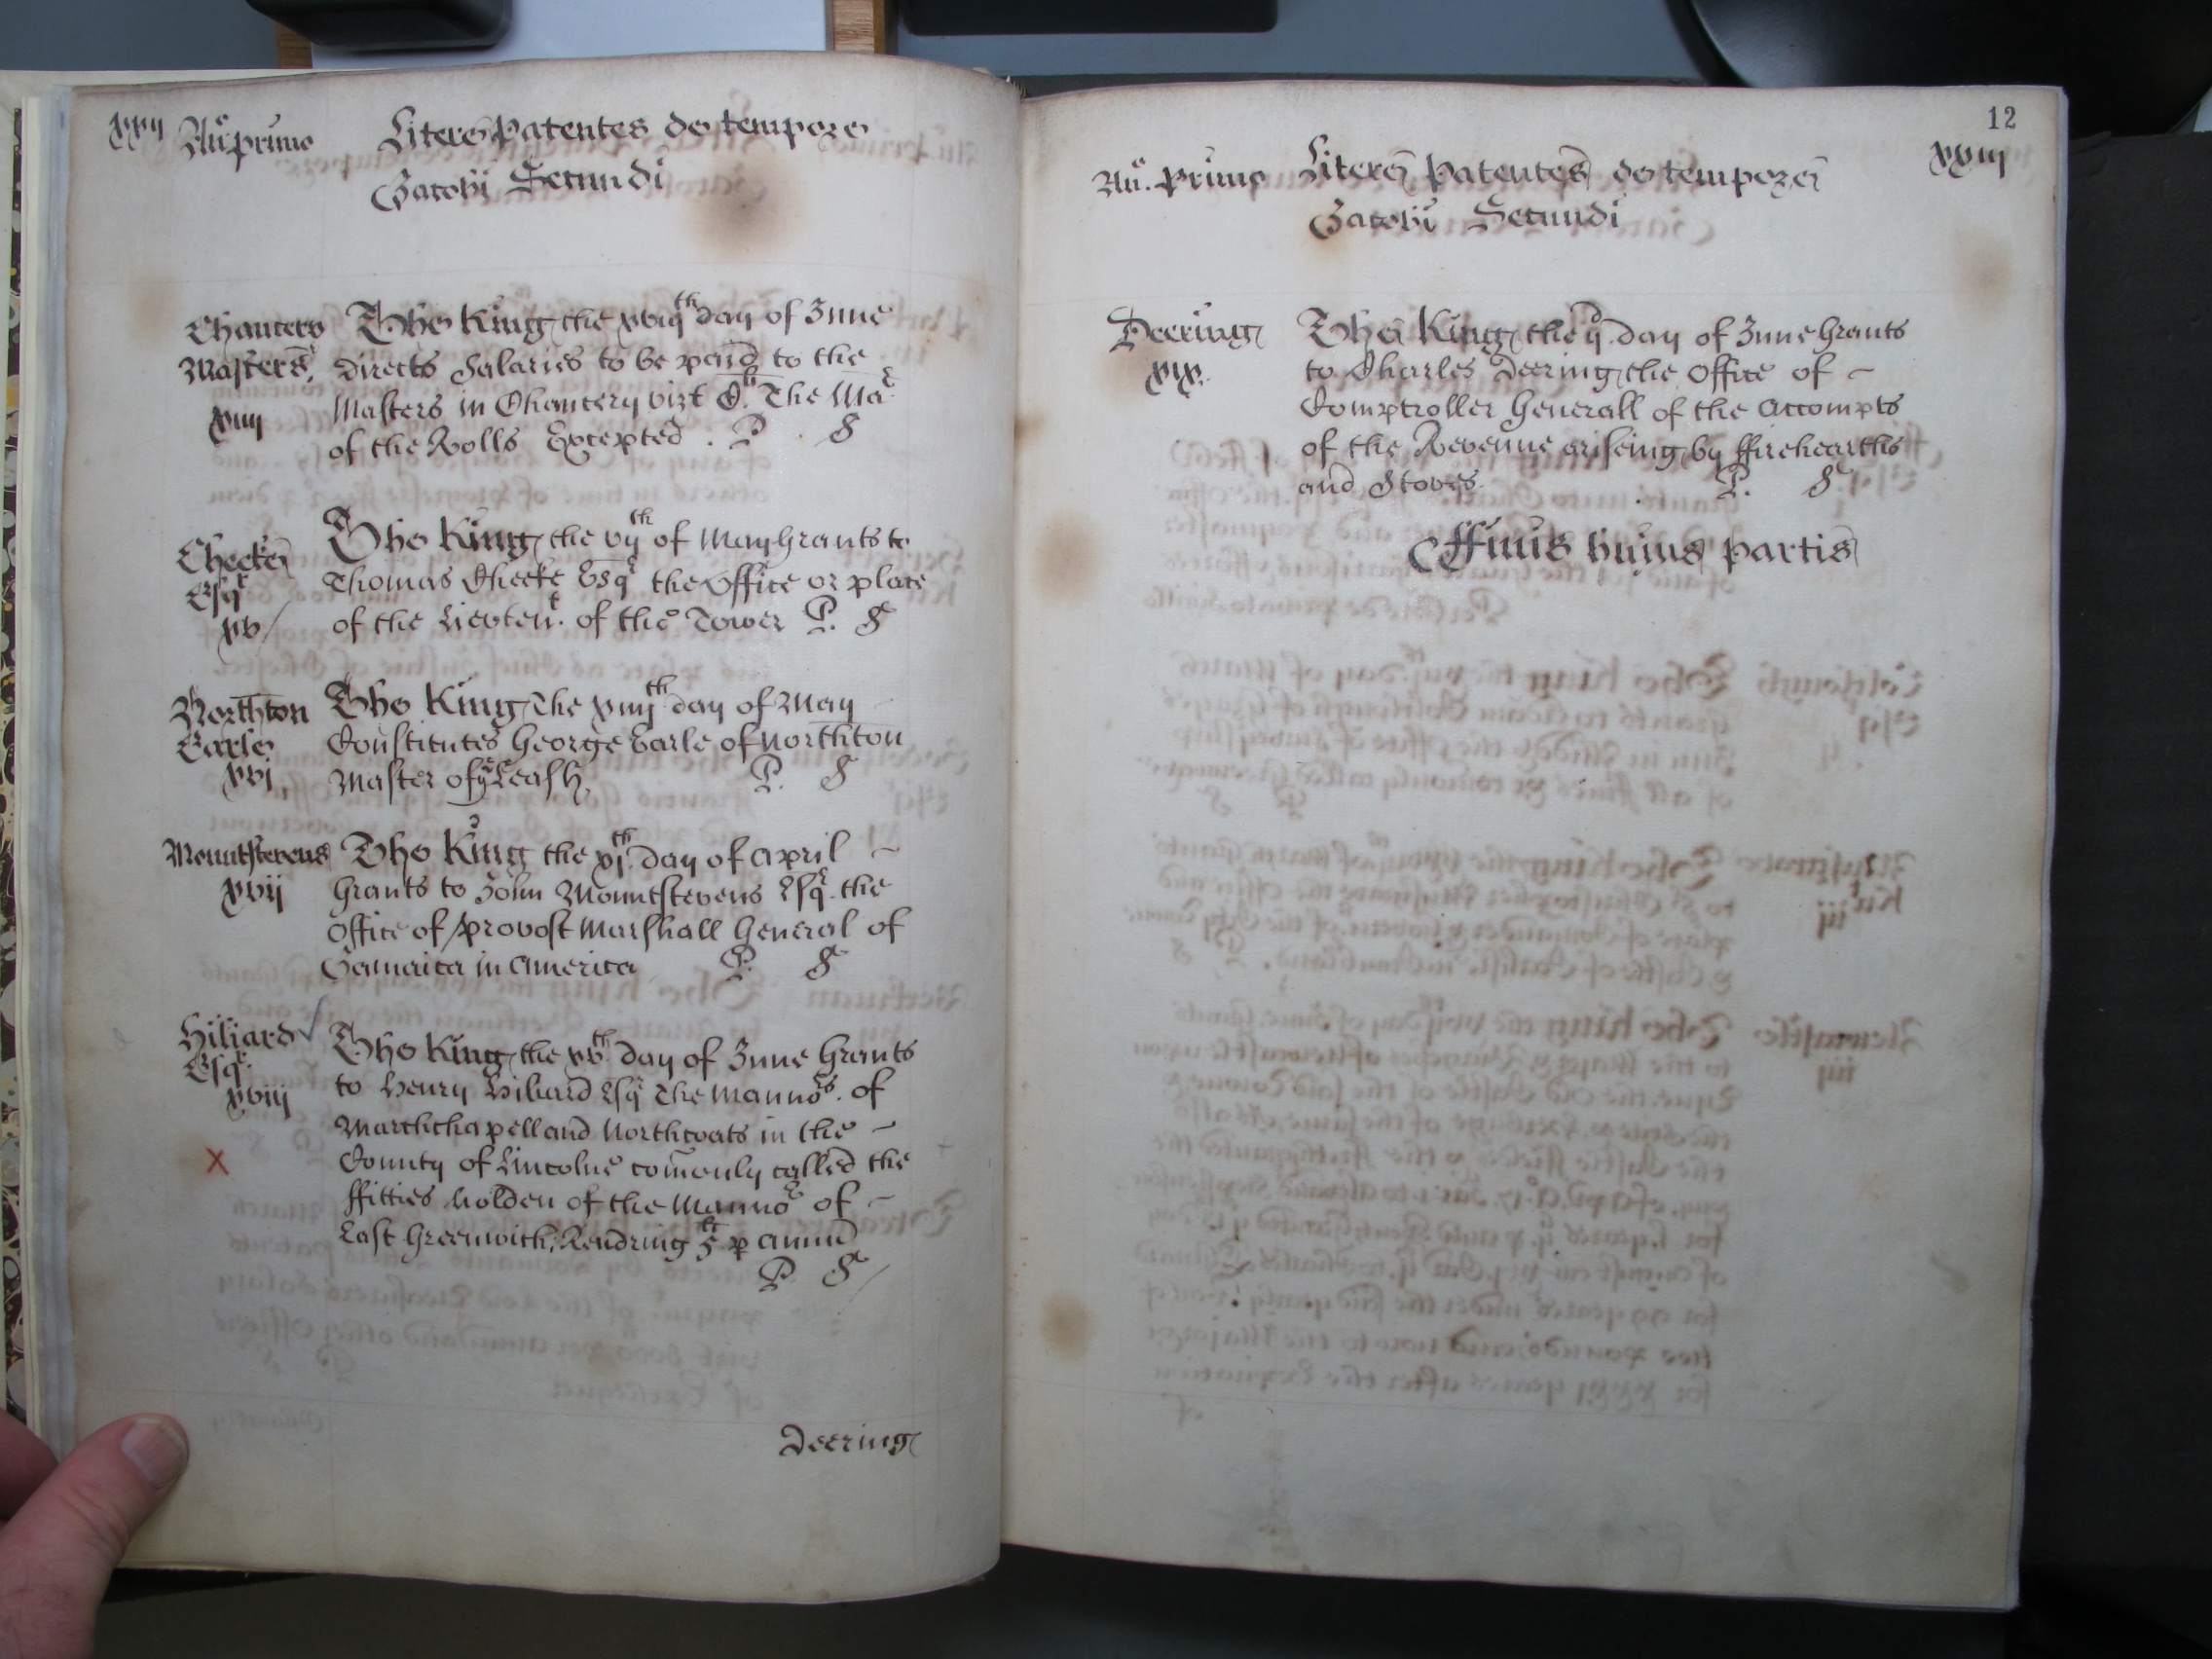 xxij Año primo Litere Patentes de tempore
Jacobi Secundi
Chancery
Masters
xiiij
The King the xviijth day of June
directs Salaries to be paid to the
Masters in Chancery vizt The Mar
of the Rolls Excepted . P . S
Cheeke
Esqr
xv
The King the vijth of May Grants to
Thomas Cheeke Esqr the Office or place
of the Lievtent. of the Tower P. S
Northton
Earle
xvj
The King The xiiijth day of May
Constitutes George Earle of Northton
Master of ye Leash. P. S
Mountstevens
xvij
The King the xjth day of April
Grants to John Mountstevens Esqr the
Office of Provost Marshall General of
Jamaica in America P. S
Hiliard
Esqr
xviij
X
The King the xvth day of June Grants
to Henry Hiliard Esqr The Mannors. of
Marthchapell and Northcoats in the
County of Lincolne com̃only called the
ffitties holden of the Mannor of
East Greenwich, Rendring 5lt p annũ
P. S
Deering
12
xxiij
Añ. Primo Litere Patentes de tempore
Jacobi Secundi
Deering
xix.
The King the ijd day of June Grants
to Charles Deering the Office of
Comptroller Generall of the Accompts
of the Revenue ariseing by ffirehearths
and Stoves. P. S
ffinis hujus Partis